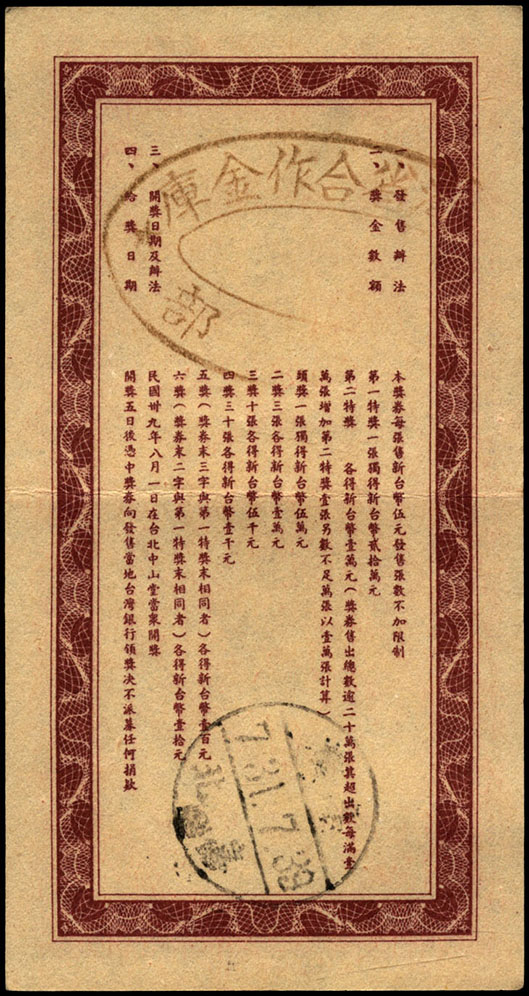 一、發售辦法
本獎券每張售新台幣伍元發售張數不加限制
二、獎金數額
第一特獎一張獨得新台幣貳拾萬元
第二特獎　各得新台幣壹萬元(獎券售出總數逾二十萬張其超出數每滿壹
萬張增加第二特獎壹張另數不足萬張以壹萬張計算)
頭獎一張獨得新台幣伍萬元
二獎三張各得新台幣壹萬元
三獎十張各得新台幣伍千元
四獎三十張各得新台幣壹千元
五獎(獎券末三字與第一特獎末相同者)各得新台幣壹百元
六獎(獎券末二字與第一特獎末相同者)各得新台幣壹拾元
三、開獎日期及辦法
民國卅九年八月一日在台北中山堂當眾開獎
四、給獎日期
開獎五日後憑中獎券向發售當地台灣銀行領獎決不派募任何捐款
合作金庫
部
7.31.7.39
北